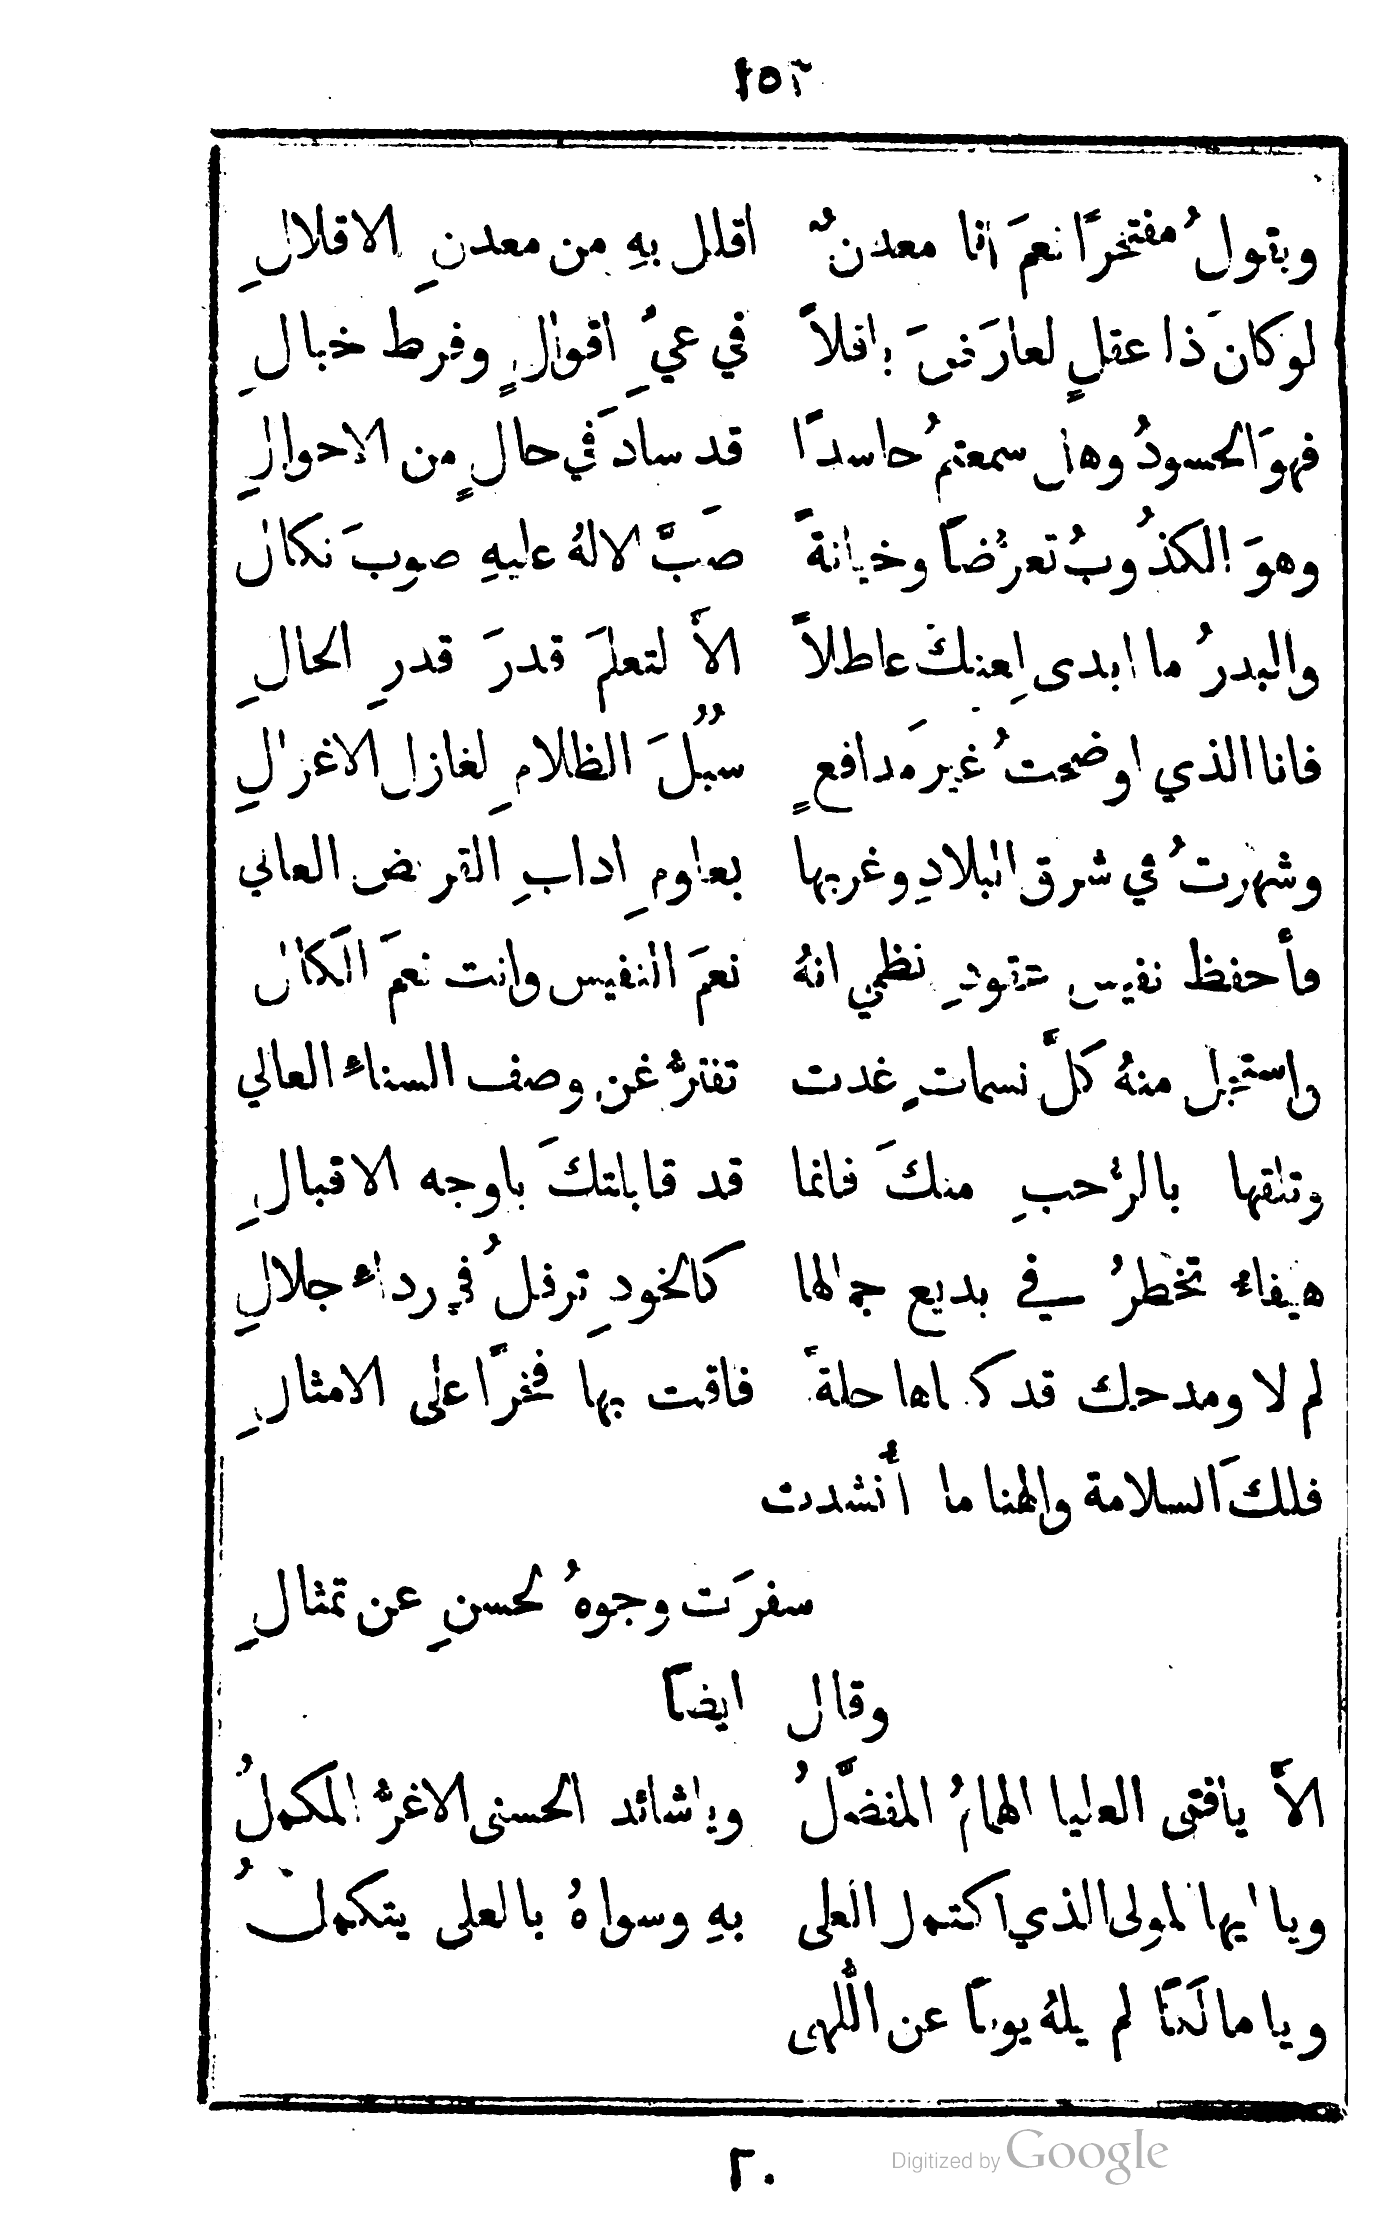 ١٥٣
ويقولُ مفتخرًا نعمَ انا معدنٌ اقلل بهِ من معدنِ الاقلالِ
لوكانَ ذا عقلٍ لعارَضَ باقلاً في عيِّ اقوالٍ وفرط خبالِ
فهوَ الحسودُ وهل سمعتمُ حاسدًا قد سادَ في حالٍ من الاحوالِ
وهوَ الكذُوبُ تعرُّضاً وخيانةً صَبَّ الالهُ عليهِ صوبَ نكال
والبدرُ ما ابدى لِعينكَ عاطلاً الاَّ لتعلمَ قدرَ قدرِ الحالِ
فانا الذي اوضحتُ غيرَ مدافعٍ سُبُلَ الظلامِ لغازل الاغزالِ
وشهرتُ في شرق البلادِ وغربها بعلومِ ادابِ القريض العالي
فأحفظ نفيس عقودِ نظمي انهُ نعمَ النفيس وانت نعمَ الكالَ
واستجل منهُ كلَّ نسماتٍ غدت تفترُّ عن وصف السناء العالي
وتلقها بالرُّحبِ منكَ فانما قد قابلتكَ باوجه الاقبالِ
هيفاء تخطرُ في بديع جمالها كالخودِ ترفلُ في رداء جلالِ
لم لا ومدحك قد كساها حلةً فاقت بها فخرًا على الامثالِ
فلكَ السلامة والهنا ما أُنشدت
سفرَت وجوهُ لحسنِ عن تمثالِ
وقال ايضاً
الاَّ يافتى العليا الهمامُ المفضَّلُ وياشائد الحسنى الاغرُّ المكملُ
ويا ايها المولى الذي اكتمل العلى بهِ وسواهُ بالعلى يتكملُ
ويا مالكًا لم يلهُ يوماً عن اللُّهى
٢٠
Digitized by Google